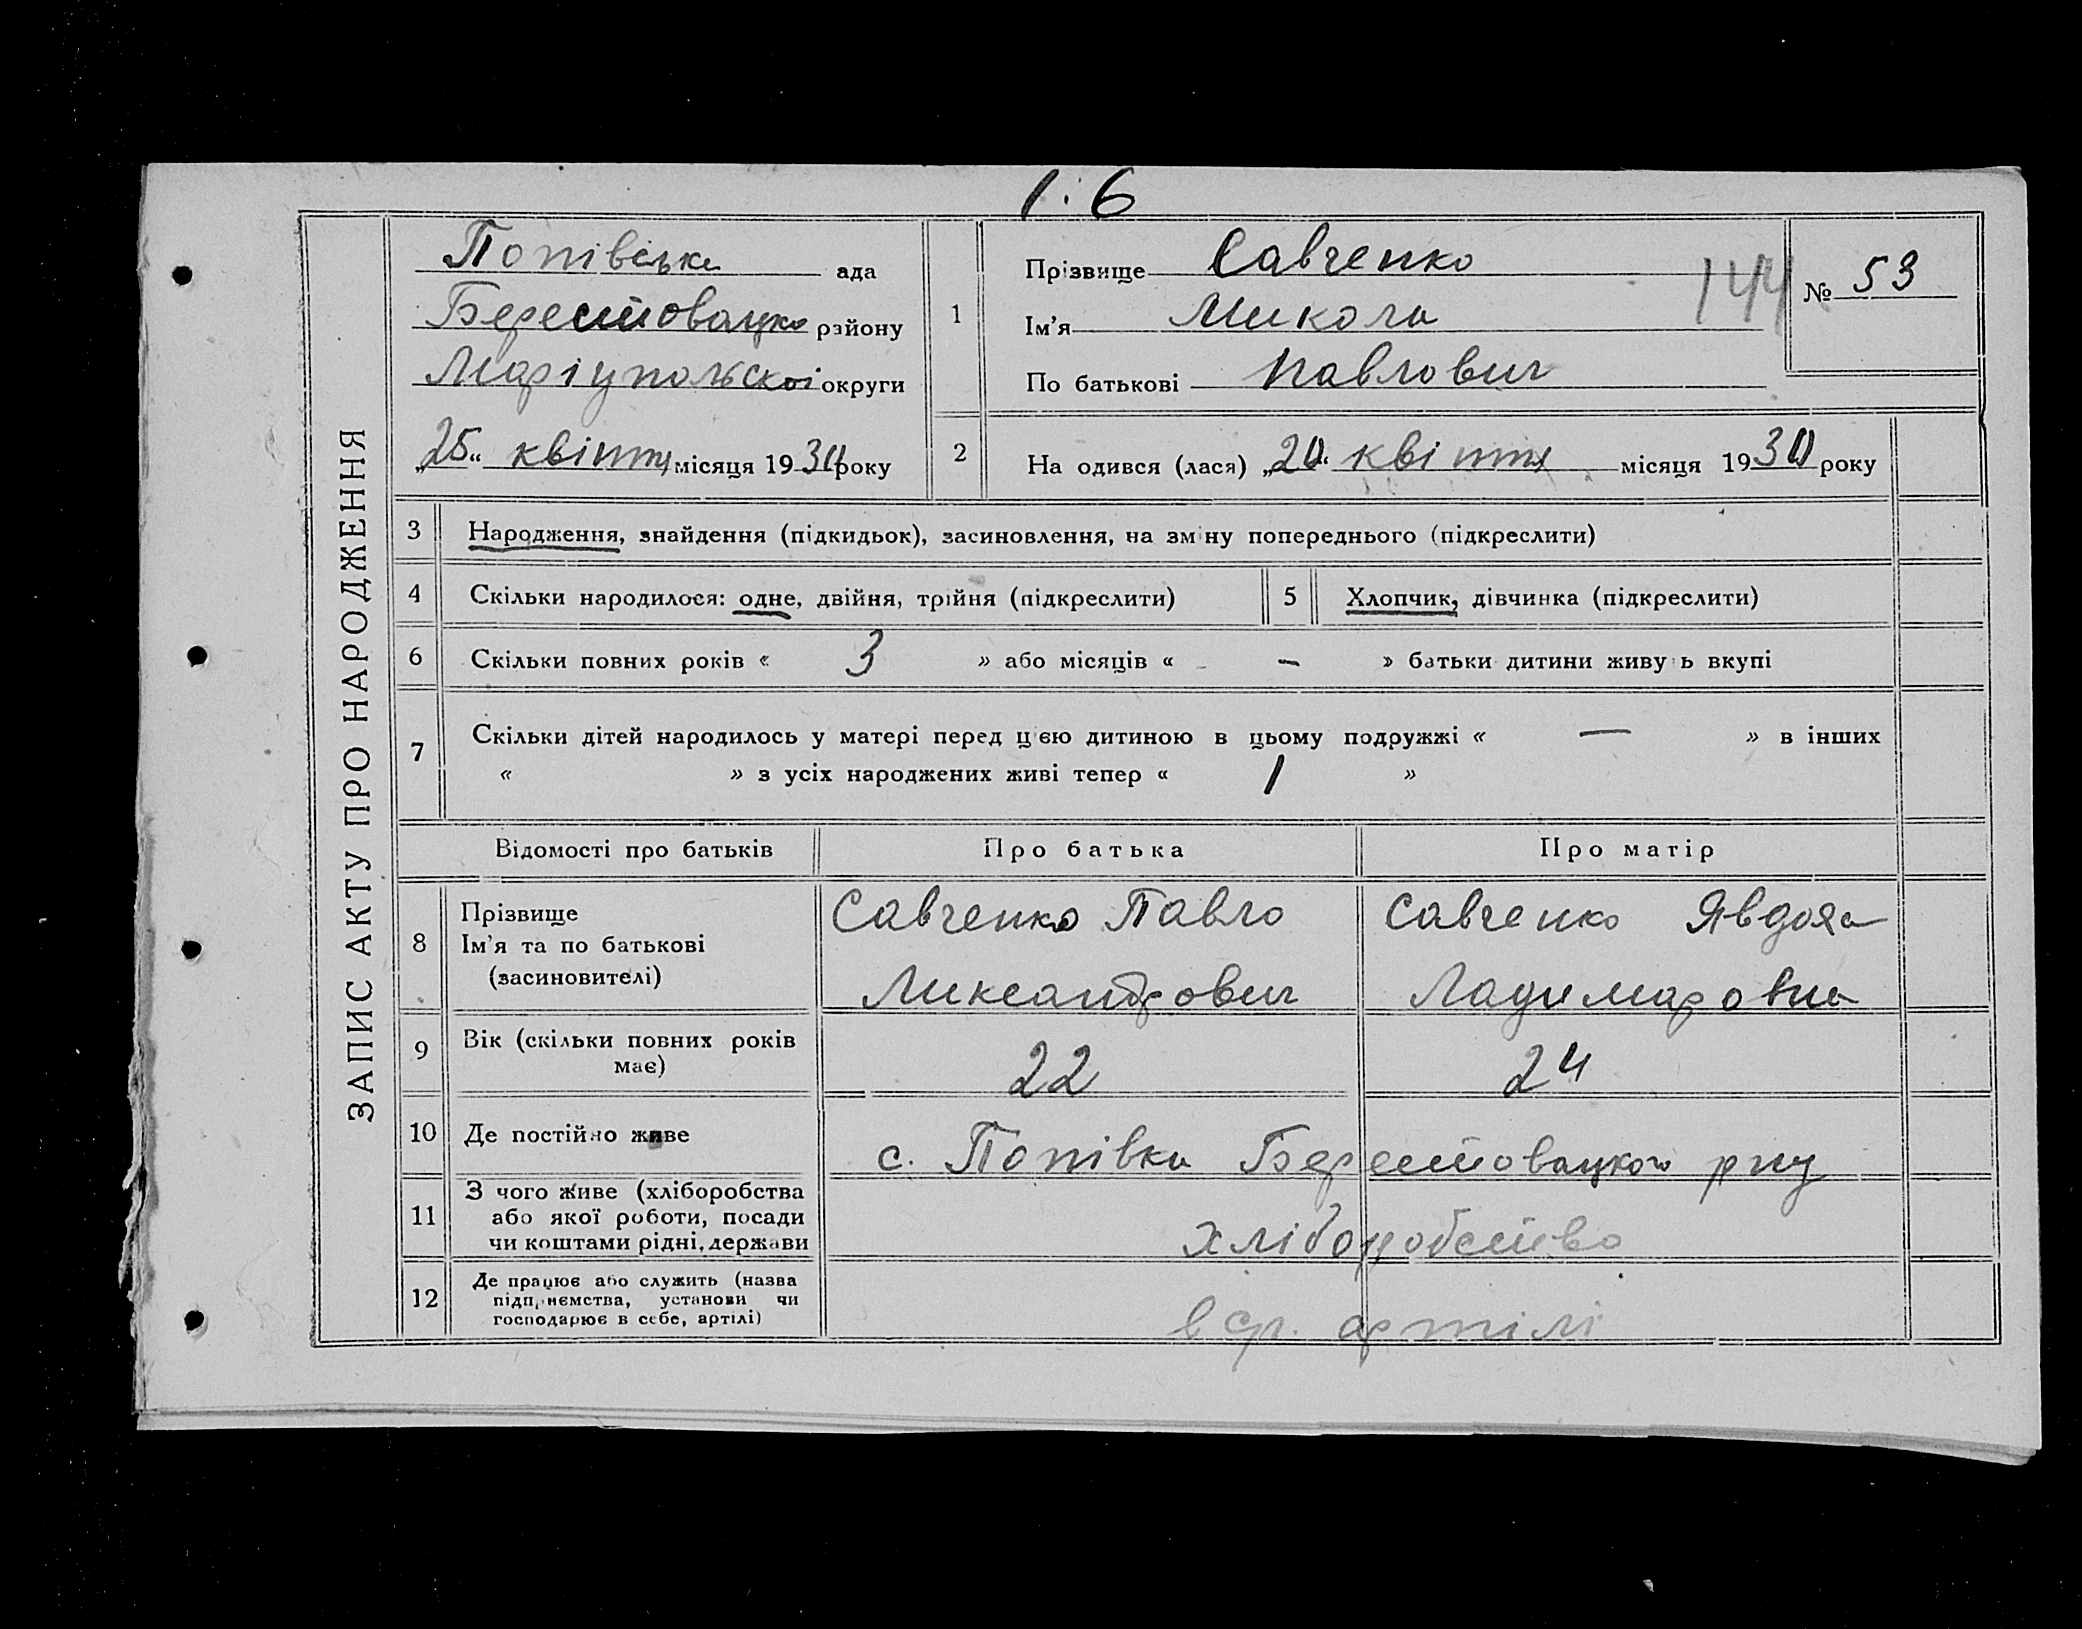 1. 6
ЗАПИС АКТУ ПРО НАРОДЖЕННЯ
Попівська ада
Берестовацько району
Маріупольскоі округи
„25“ квітня місяця 1930 року
1
Прізвище Савченко
Ім'я Микола
По батькові Павлович
144
№ 53
2
На одився (лася) „20“ квітня місяця 1930 року
3 Народження, знайдення (підкидьок), засиновлення, на зміну попереднього (підкреслити)
4 Скільки народилося: одне, двійня, трійня (підкреслити) 5 Хлопчик, дівчинка (підкреслити)
6 Скільки повних років « 3 » або місяців « — » батьки дитини живу ь вкупі
7 Скільки дітей народилось у матері перед цією дитиною в цьому подружжі « — » в інших
« » з усіх народжених живі тепер « 1 »
Відомості про батьків Про батька Про матір
8 Прізвище
Ім'я та по батькові
(засиновителі)
Савченко Павло
Ликсантрович
Савченко Явдоха
Ладимаровна
9 Вік (скільки повних років
має)
22 24
10 Де постійно живе с. Попівка Берестовацкого рну
11 З чого живе (хліборобства
або якої роботи, посади
чи коштами рідні, держави
хліборобство
12 Де працює або служить (назва
підприємства, установи чи
господарює в себе, артілі)
в ср. артілі